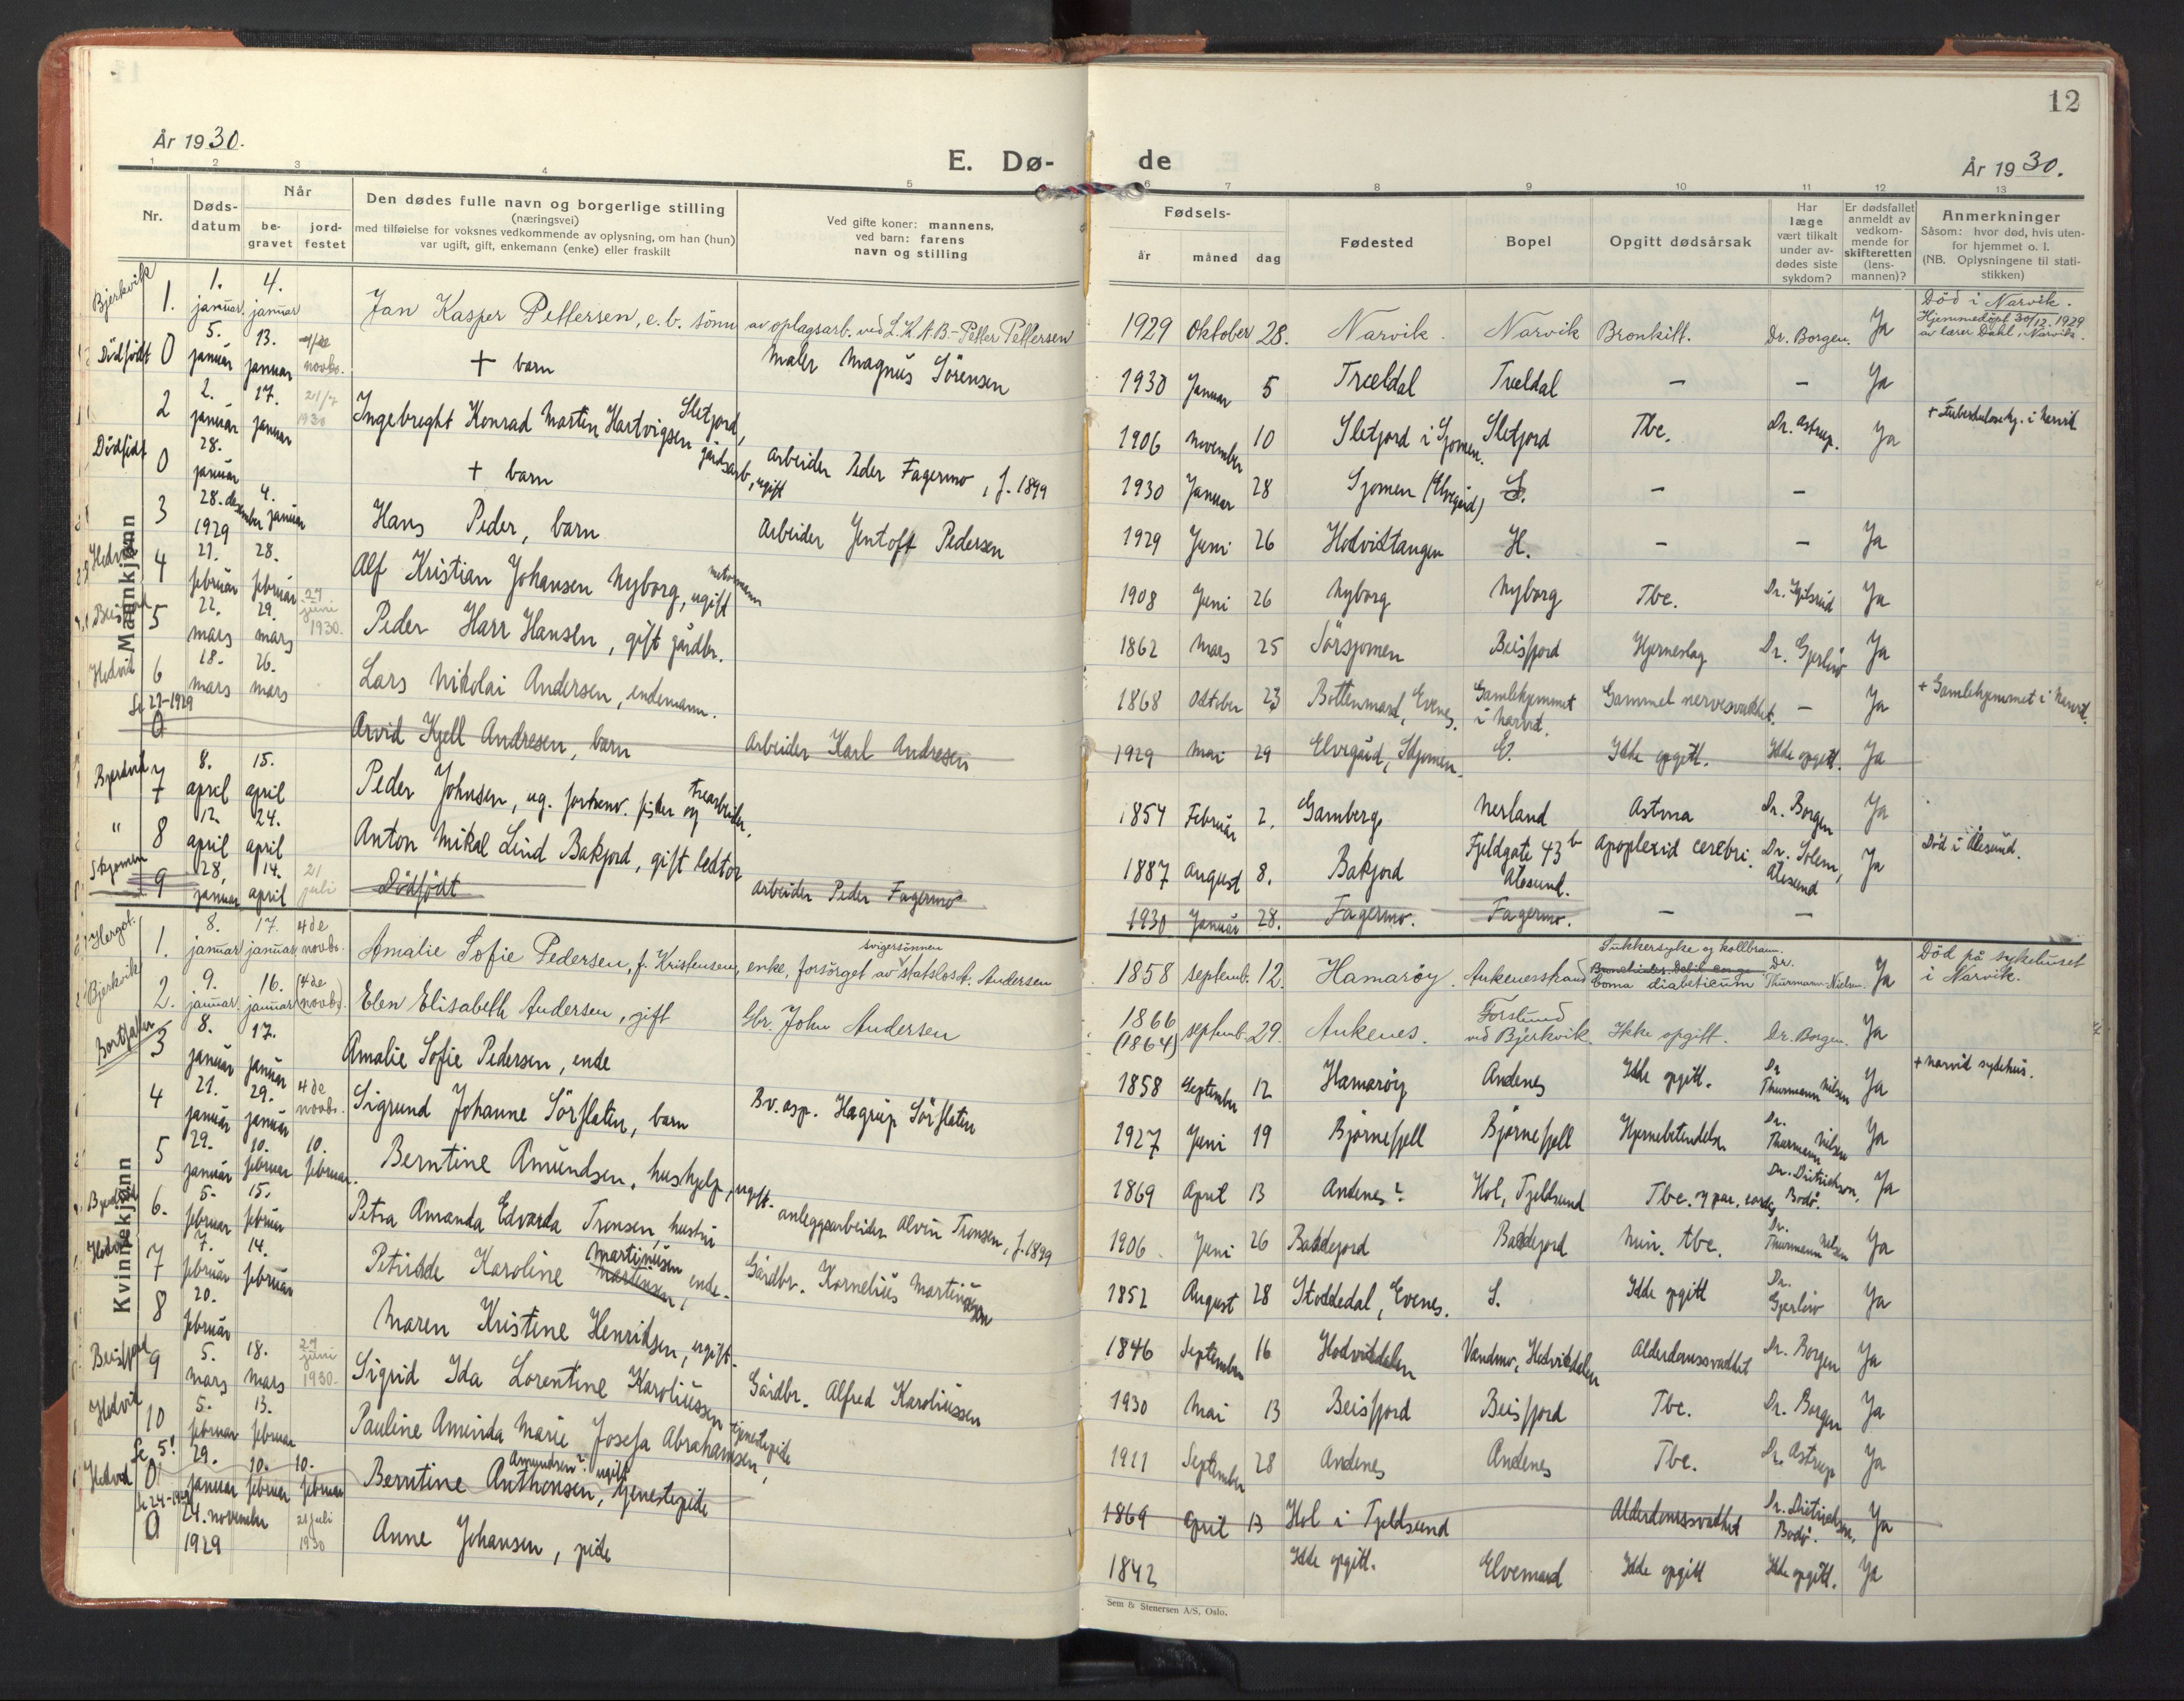 12
År 1930.
E. Dø-
de
År 1930.
1 2 3 4 5 6 7 8 9 10 11 12 13
Nr.
Døds-
datum
Når
be-
gravet
jord-
festet
Den dødes fulle navn og borgerlige stilling
(næringsvei)
med tilføielse for voksnes vedkommende av oplysning, om han (hun)
var ugift, gift, enkemann (enke) eller fraskilt
Ved gifte koner: mannens,
ved barn: farens
navn og stilling
Fødsels-
år måned dag
Fødested
Bopel
Opgitt dødsårsak
Har
læge
vært tilkalt
under av-
dødes siste
sykdom?
Er dødsfallet
anmeldt av
vedkom-
mende for
skifteretten
(lens-
mannen)?
Anmerkninger
Såsom: hvor død, hvis uten-
for hjemmet o. l.
(NB. Oplysningene til stati-
stikken)
Mannkjønn
Bjerkvik 1. 1. januar. 4. januar Jan Kasper Pettersen, e. b. sönn av oplagsarb. ved L.K.A.B. Petter Pettersen 1929 Oktober 28. Narvik. Narvik Bronkitt. Dr. Borgen. Ja Död i Narvik. Hjemmedöpt 30/12. 1929 av lærer Dahl, Narvik.
Dödfödt 0 5. januar 13. januar novbr. + barn Maler Magnus Sörensen 1930 Januar 5 Trældal Trældal — — Ja
2 2. januar 17. januar 21/7 1930 Ingebreght Konrad Martin Hartvigsen Sletjord, jordarb, ugift 1906 November 10 Sletjord i Sjomen. Sletjord Tbc. Dr. Astrup. Ja
Dödfödt 0 28. januar + barn Arbeider Peder Fagermo, f. 1899 1930 Januar 28 Sjomen (Elvegård) S. — —
3 28. desember 1929 4. januar Hans Peder, barn Arbeider Jentoft Pedersen 1929 Juni 26 H. — — Ja
4 21. februar 28. februar Alf Kristian Johansen Nyborg, ugift 1908 Juni 26 Nyborg Nyborg Tbc. Ja
5 22. mars 29. mars 27 juni 1930. Peder Harr Hansen, gift gårdbr. 1862 Mars 25 Sörsjomen Beisfjord Hjerneslag Dr. Gjerlöw Ja
6 18. mars 26. mars Lars Nikolai Andersen, enkemann. 1868 Oktober 23 Evenes. Gamlehjemmet i Narvik. Gammel nervesvakhet. — Ja + Gamlehjemmet i Narvik.
Se 27-1929 0 Arvid Kjell Andresen, barn Arbeider Karl Andresen 1929 Mai 29 Elvegård, Skjomen. E. Ikke opgitt. Ikke opgitt. Ja
Bjerkvik 7 8. april 15. april Peder Johnsen, ug. forhenv. fisker og trearbeider. 1854 Februar 2. Gamberg Nerland Astma Dr. Borgen Ja
" 8 12. april 24. april Anton Mikal Lind Bakjord, gift lektor 1887 August 8. Bakjord Fjeldgate 43 b Ålesund. Apoplexia cerebri. Dr. Solem, Ålesund Ja Död i Ålesund.
Skjomen 9 28, januar 14. april 21 juli Dödfödt Arbeider Peder Fagermo 1930 Januar 28. Fagermo. Fagermo. — —
Kvinnekjønn
Hergot. 1. 8. januar 17. januar 4de novbr. Amalie Sofie Pedersen, f. Kristensen, enke, forsörget av svigersönnen statslost. Andersen 1858 septemb. 12. Hamaröy. Ankenesstrand Sukkersyke og kollbrann. coma diabeticum Dr. Thurmann-Nielsen. Ja Död på sykehuset i Narvik.
Bjerkvik 2. 9. januar. 16. januar (4de novbr.) Elen Elisabeth Andersen, gift Gbr. John Andersen 1866 (1864) septemb. 29. Ankenes. ved Bjerkvik. Ikke opgitt. Dr. Borgen. Ja
Bortfaller 3 8. januar 17. januar Amalie Sofie Pedersen, enke 1858 September 12 Hamaröy Ankenes Ikke opgitt. Dr. Thurmann Nilsen Ja + Narvik sykehus.
4 21. januar 29. januar 4de novbr. Sigrund Johanne Sörflaten, barn Bv. asp. Hagrup Sörflaten 1927 Juni 19 Björnefjell Björnefjell Hjernebetendelse Dr. Thurmann Nilsen Ja
5 29. januar 10. februar 10. februar. Berntine Amundsen, hushjelp, ugift. 1869 April 13 Ankenes? Hol, Tjeldsund Tbc. Dr. Ditrichson, Bodö. Ja
Bjerkvik 6. 5. februar 15. februar Petra Amanda Edvarda Tronsen, hustru anleggsarbeider Alvin Tronsen, f. 1899 1906 Juni 26 Bakkejord Bakkejord Min. tbc. Dr. Thurmann Nilsen Ja
7 7. februar 14. februar Petrikke Karoline Martinsen Martinussen, enke. Gårdbr. Kornelius Martinussen 1852 August 28 Stokkedal, Evenes. S. Ikke opgitt Dr. Gjerlöw Ja
8 20. februar Maren Kristine Henriksen, ugift. 1846 September 16 Alderdomssvakhet Dr. Borgen Ja
Beisfjord 9 5. mars 18. mars 27 juni 1930. Sigrid Ida Lorentine Karoliussen Gårdbr. Alfred Karoliussen 1930 Mai 13 Beisfjord Beisfjord Tbc. Dr. Borgen Ja
10 5. februar 13. februar Pauline Aminda Marie Josefa Abrahamsen, tjenestepike 1911 September 28 Ankenes Ankenes Tbc. Dr. Astrup Ja
Se 5! 0 29. januar 10. februar 10. februar Berntine Anthonsen, Amundsen? ugift tjenestepike 1869 April 13 Hol i Tjeldsund Alderdomssvakhet Dr. Ditrichson, Bodö. Ja
Se 24-1929 0 24. november 1929 21 juli 1930 Anne Johansen, pike 1842 Ikke opgitt. Elvemark Ikke opgitt Ikke opgitt. Ja
Sem & Stenersen A/S, Oslo.